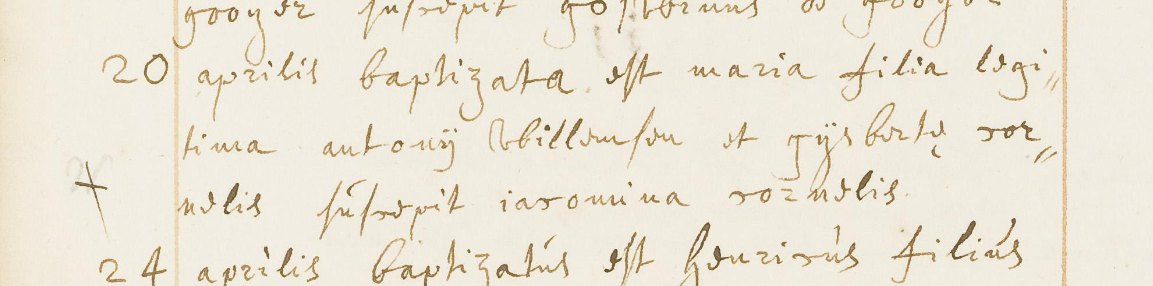 suscepit
20 aprilis baptizata est maria filia legi„
tima antonij Willemsen et gijsbertę cor„
nelis suscepit iacomina cornelis
24 aprilis baptizatus est henricus filius